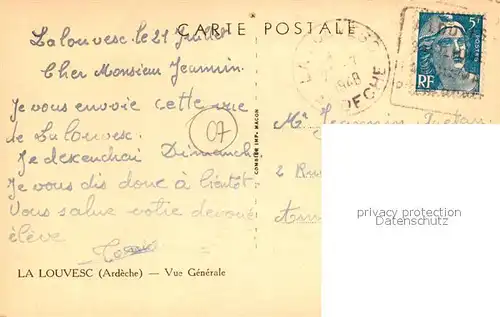 CARTE POSTALE
Lalouvesc le 21 Juillet
Cher Monsieur Jeannin.
Je vous envoie cette vue
de Lalouvesc.
Je descendrai Dimanche
Je vous dis donc à bientôt.
Vous salue votre dévoué
élève
LA LOUVESC (Ardèche) — Vue Générale
07
COMBIER IMP. MACON
5F
POSTES
RF
1948
ARDECHE
Mr Jeannin
2 Rue
privacy protection
Datenschutz